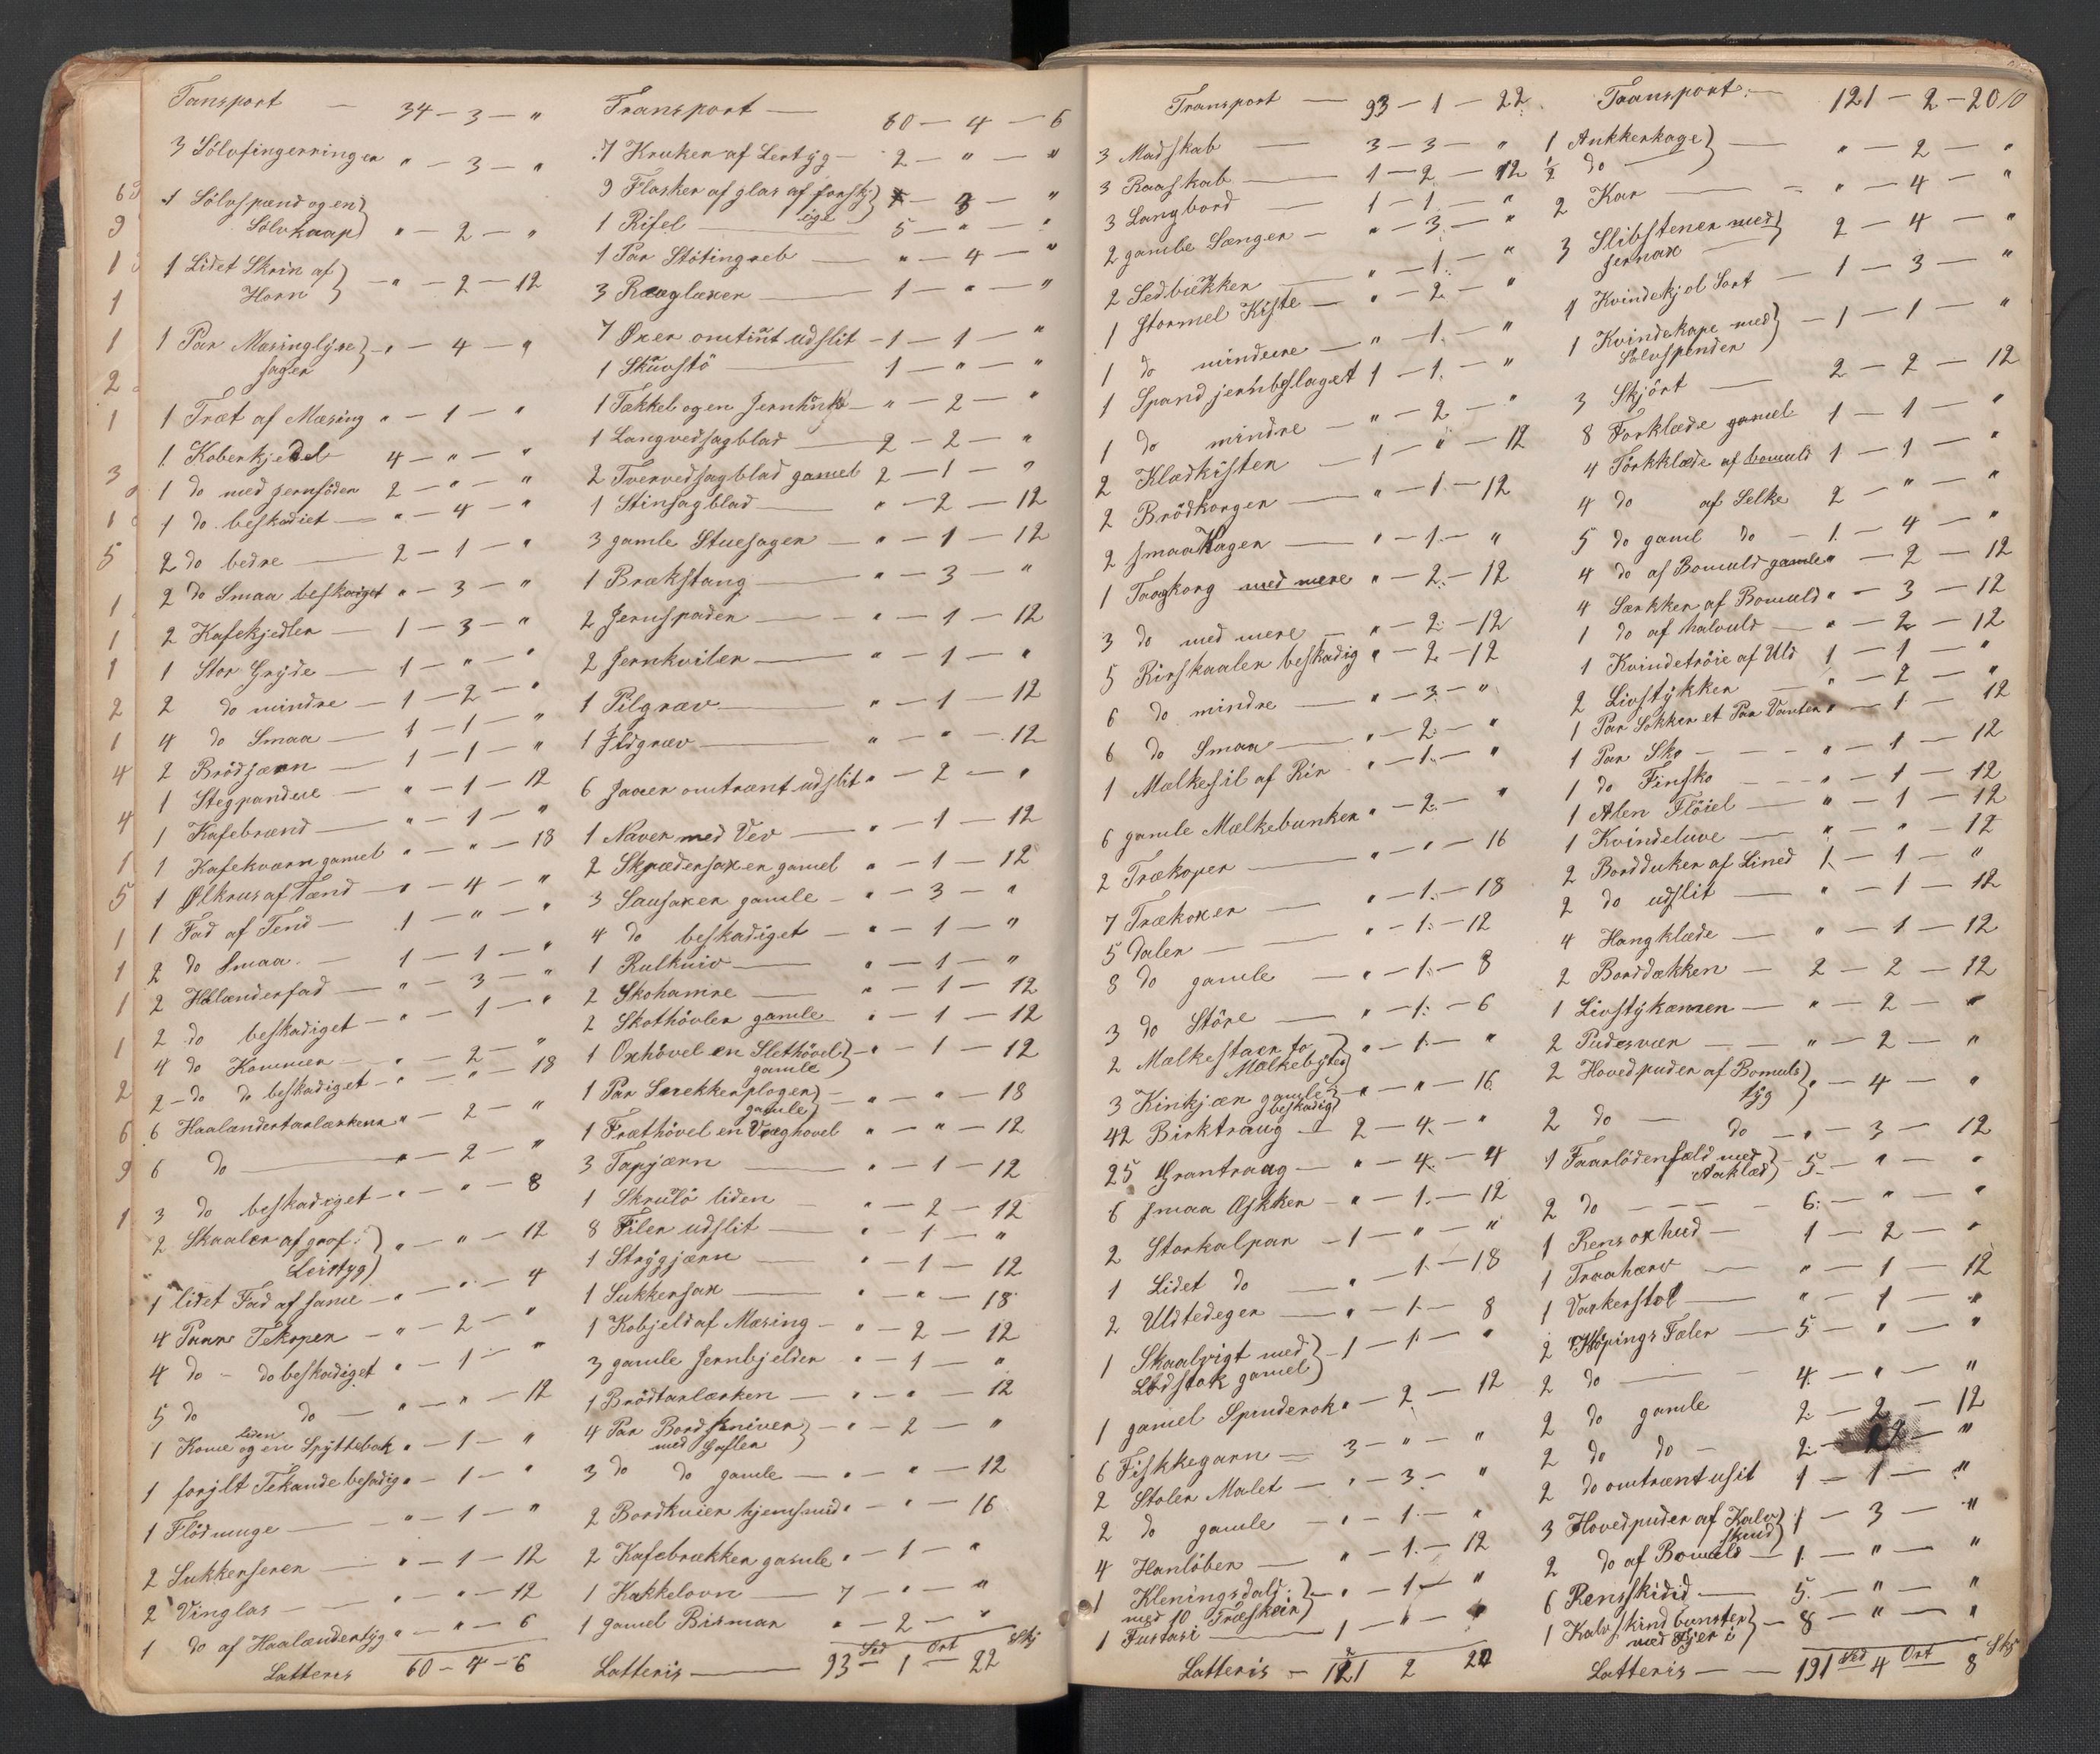 Tansport — 34 — 3 — "
3 Sölvfingerringer " — 3 — "
1 Sölvspænd og en }
Sölvknap } " — 2 — "
1 Lidet Skrin af }
Horn } — " — 2 — 12
1 Par Mæsinglyse }
sager } — " — 4 — "
1 Træt af Mæsing " — 1 — "
1 Koberkjedel 4 — " — "
1 do med Jernföder 2 — " — "
1 do beskadiet — " — 4 — "
2 do bedre — 2 — 1 — "
2 do Smaa beskadiget " — 3 — "
2 Kafekjedler — 1 — 3 — "
1 Stor Gryde — 1 — " — "
2 do mindre — 1 — 2 — "
4 do Smaa — 1 — 1 — "
2 Brödjærn — 1 — 1 — "
1 Stegpandere — " — 1 — 12
1 Kafebrænd — " — 1 — "
1 Kafekværn gamel " — " — 18
1 Ølkrus af Tænd — " — 4 — "
1 Fad af Tend — 1 — " — "
2 do Smaa — 1 — 1 — "
2 Holænderfad — " — 3 — "
2 do beskadiget — " — 1 — "
4 do Kommer — " — 2 — "
2 — do do beskadiget — " — " — 18
6 Haalændertarlærkener " — 2 — "
6 do — " — 2 — "
3 do beskadiget — " — " — 8
2 Skaaler af grof: }
Leirtyg } " — " — 12
1 lidet Fad af same — " — " — 4
4 Paar Tekoper — " — 2 — "
4 do — do beskadiget " — 1 — "
5 do do — " — " — 12
1 Kome liden og en Spyttebak " — 1 — "
1 forjlt Tekande besadig " — 1 — "
1 Flödmuge — " — 1 — "
2 Sukkerserer — " — 1 — 12
2 Vinglas — " — " — 12
1 do af Haalændertyg " — " — 6
Latteris 60 — 4 — 6
Transport — 60 — 4 — 6
7 Kruker af Lertyg — 2 — " — "
9 Flasker af glas af forskj }
lige } " — 3 — "
1 Rifel — 5 — " — "
1 Par Stötingreb — " — 4 — "
3 Ræveglæxer — 1 — " — "
7 Øxer omtint udslit — 1 — 1 — "
1 Skuvstö — 1 — " — "
1 Tækkel og en Jernhink — " — 2 — "
1 Langvedsagblad — 2 — 2 — "
2 Tvervedsagblad gamel 2 — 1 — "
1 Stinsagblad — " — 2 — 12
3 gamle Stuesager — " — 1 — 12
1 Brækstang — " — 3 — "
2 Jernspader — " — 1 — 12
2 Jernkviler — " — 1 — "
1 Pilgræv — " — 1 — 12
1 Jldgræv — " — " — 12
6 Jaaer omtrænt udslit " — 2 — "
1 Naver med Vev — " — 1 — 12
2 Skrædersaxer gamel " — 1 — 12
3 Sausaxer gamle — " — 3 — "
4 do beskadiget — " — 1 — "
1 Rulkniv — " — 1 — "
2 Skohamre — " — 1 — 12
2 Skothövler gamle " — 1 — 12
1 Oxhövel en Slethövel }
gamle } — " — 1 — 12
1 Par Snekkerploger }
gamle } — " — " — 18
1 Fræthövel en Væghovel " — " — 12
3 Tapjærn — " — 1 — 12
1 Skrutö liden — " — 2 — 12
8 Filer udslit — " — 1 — "
1 Strygjærn — " — 1 — 12
1 Sukkersax — " — " — 18
1 Kobjeld af Mæsing — " — 2 — 12
3 gamle Jernbjelder " — 1 — "
1 Brödtarlærken — " — " — 12
4 Par Bordkniver }
med Gafler } — " — 2 — "
3 do do gamle — " — " — 12
2 Bordknier hjemsmid " — " — 16
2 Kafebrækker gamle " — 1 — "
1 Kakkelovn — 7 — " — "
1 gamel Bismar " — 2 — "
Latteris — 93 Sed — 1 Ort — 22 Skj
Transport — 93 — 1 — 22
3 Madskab — 3 — 3 — "
3 Raaskab — 1 — 2 — 12
3 Langbord — 1 — 1 — "
2 gamle Sænger — " — 3 — "
2 Sedbukker — " — 1 — "
1 Stormel Kiste — " — 2 — "
1 do mindere — " — 1 — "
1 Spand jernbeslaget 1 — 1 — "
1 do mindre — " — 2 — "
2 Klædkister — 1 — " — 12
2 Brödkorger — " — 1 — 12
2 smaa Kager — " — 1 — "
1 Taagkorg med mere " — 2 — 12
3 do med mere — " — 2 — 12
5 Rirskaaler beskadig " — 2 — 12
6 do mindre — " — 3 — "
6 do Smaa — " — 2 — "
1 Mælkesil af Rir — " — 1 — "
6 gamle Mælkebunker " — 2 — "
2 Trækoper — " — " — 16
7 Trækoxer — " — 1 — 18
5 Daler — " — 1 — 12
8 do gamle — " — 1 — 8
3 do Störe — " — 1 — 6
2 Mælkestaer to }
Mælkebytter } " — 1 — "
3 Kinkjær gamle }
beskadig } " — " — 16
42 Birktraug — 2 — 4 — "
25 Grantraag — " — 4 — 4
6 smaa Æskker — " — 1 — 12
2 Storkalpar — 1 — " — "
1 Lidet do — " — 1 — 18
2 Uldtedeger — " — 1 — 8
1 Skaalvigt med }
Lodstok gamel } — 1 — 1 — "
1 gamel Spinderok " — 2 — 12
6 Fiskkegarn — 3 — " — "
2 Stoler Malet — " — 3 — "
2 do gamle — " — 1 — "
4 Hanlöber — " — 1 — 12
1 Kleningsdald: }
med 10 Træskeir } — " — 1 — "
1 Fustasi — 1 — " — "
Latteris — 121 2 20
Transport: — 121 — 2 — 20
1 Ankkerkage }
½ do — } — " — 2 — "
2 Kar — " — 4 — "
3 Slibstener med }
Jernax } 2 — 4 — "
1 Kvindekjol Sort — 1 — 3 — "
1 Kvindekape med }
Sölvspender } — 1 — 1 — "
3 Skjört — 2 — 2 — 12
8 Forklæde gamel 1 — 1 — "
4 Törkklæde af bomuld 1 — 1 — "
4 do af Selke 2 — " — "
5 do gaml do — 1 — 4 — "
4 do af Bomuld gamle " — 2 — 12
4 Særkker af Bomuld " — 3 — 12
1 do af halvuld — " — 2 — 12
1 Kvindetröie af Uld 1 — 1 — "
2 Livstykker — " — 2 — "
1 Par Sokker et Par Vanter " — 1 — 12
1 Par Sko — " — 1 — 12
1 do Finsko — " — 1 — 12
1 Alen Flöiel — " — 1 — 12
1 Kvindeluve — " — " — 12
2 Bordduker af Lined 1 — 1 — "
2 do udslit — " — 1 — 12
4 Hangklæde — " — 1 — 12
2 Borddækken — 2 — 2 — 12
1 Livstykæmen — " — 2 — "
2 Pudesvær — " — 2 — "
2 Hovedpuder af Bomuls }
tyg } " — 4 — "
2 do — do — " — 3 — 12
1 Faarlödenfæld med }
Aaklæd } 5 — " — "
2 do — 6 — " — "
1 Rensoxhud — 1 — 2 — "
1 Traahærv — " — 1 — 12
1 Varkerstol — " — 1 — "
2 Köpings Fæler — 5 — " — "
2 do — 4 — " — "
2 do gamle 2 — 2 — 12
2 do do — 2 — 2 — "
2 do omtrænt usit 1 — 1 — "
3 Hovedpuder af Kalv }
skind } 1 — 3 — "
2 do af Bomuld — 1 — " — "
6 Rensskidid — 5 — " — "
1 Kalvskind bunster }
med Fjer i } — 8 — " — "
Latteris — 191 Sed 4 Ort 8 Skj